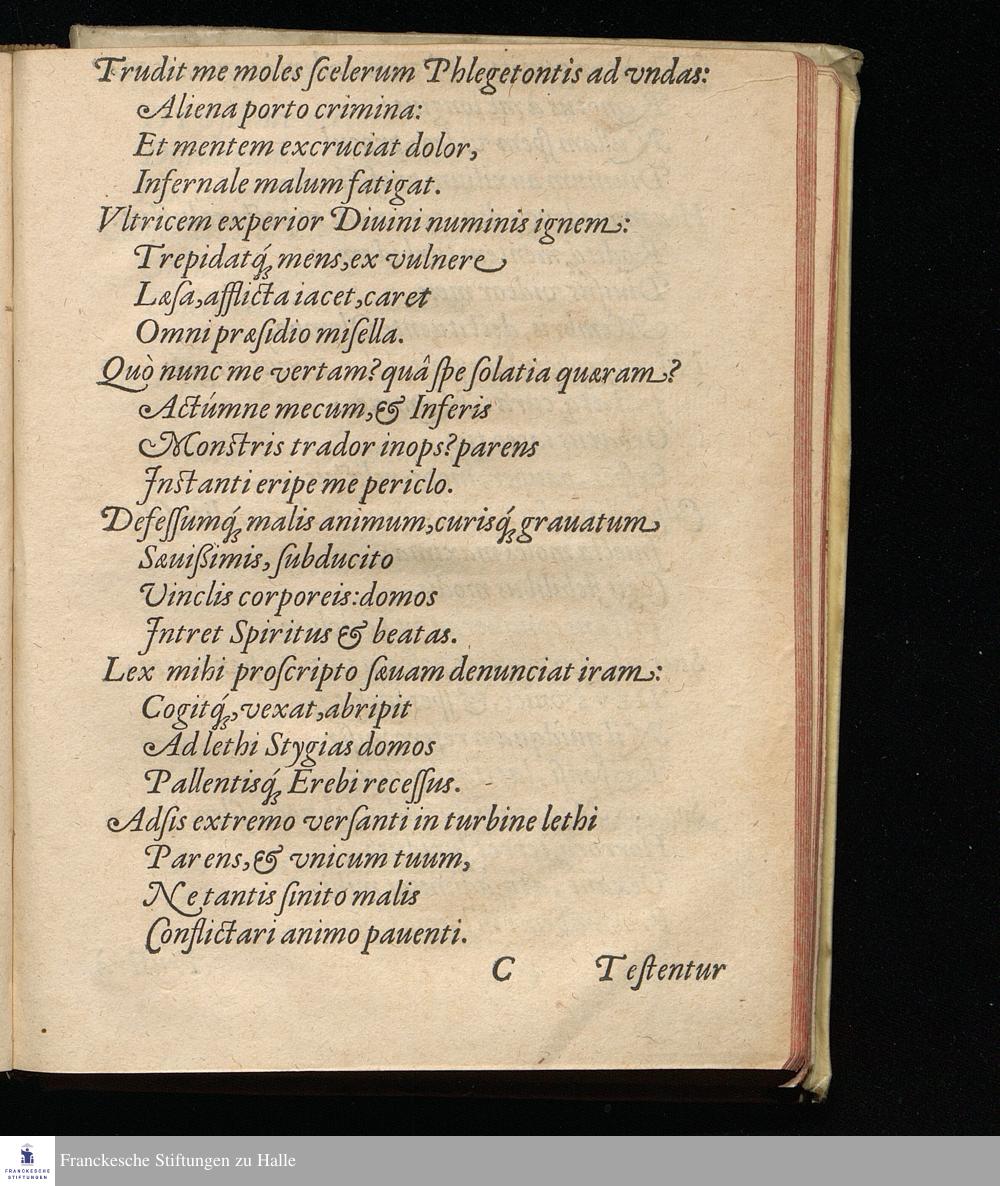 Trudit me moles ſcelerum Phlegetontis ad vndas:
Aliena porto crimina:
Et mentem excruciat dolor,
Infernale malum fatigat.
Vltricem experior Diuini numinis ignem:
Trepidatq́; mens, ex vulnere
Læſa, afflicta iacet, caret
Omni præſidio miſella.
Quò nunc me vertam? quâ ſpe ſolatia quæram?
Actúmne mecum, & Inferis
Monſtris trador inops? parens
Inſtanti eripe me periclo.
Defeſſumq́; malis animum, curisq́; grauatum
Sæuißimis, ſubducito
Vinclis corporeis: domos
Intret Spiritus & beatas.
Lex mihi proſcripto ſæuam denunciat iram:
Cogitq́;, vexat, abripit
Ad lethi Stygias domos
Pallentisq́; Erebi receſſus.
Adſis extremo verſanti in turbine lethi
Parens, & vnicum tuum,
Ne tantis ſinito malis
Conflictari animo pauenti.
C Teſtentur
Franckesche Stiftungen zu Halle
FRANCKESCHE
STIFTUNGEN